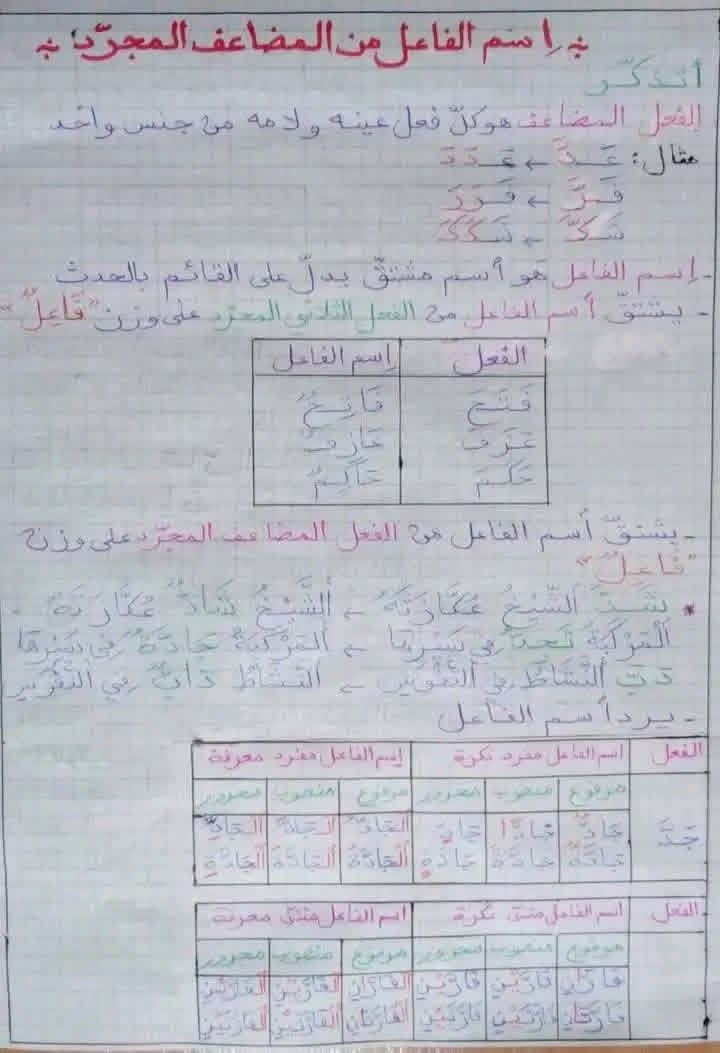 إسم الفاعل من المضاعف المجرّد:
أتذكّر
الفعل المضاعف هو كلّ فعل عينه و لامه من جنس واحد
مثال: عَدَّ ← عَدَدَ
فَرَّ ← فَرَرَ
شَكَّ ← شَكَكَ
- إسم الفاعل هو أسم مشتقّ يدلّ على القائم بالحدث
- يشتقّ أسم الفاعل من الفعل الثلاثي المجرّد على وزن "فَاعِلٌ"
الفعل إسم الفاعل
فَتَحَ فَاتِحٌ
عَزَفَ عَازِفٌ
حَكَمَ حَاكِمٌ
- يشتقّ أسم الفاعل من الفعل المضاعف المجرّد على وزن
"فَاعِلٌ"
* يَشُدُّ الشَّيْخُ عُكَّازَتَهُ ← الشَّيْخُ شَادٌّ عُكَّازَتَهُ.
الْمَرْكَبَةُ تَجِدُّ فِي سَيْرِهَا ← الْمَرْكَبَةُ جَادَّةٌ فِي سَيْرِهَا
دَبَّ النَّشَاطُ فِي النُّفُوسِ ← النَّشَاطُ دَابٌّ فِي النُّفُوسِ
- يرد أسم الفاعل
الفعل اسم الفاعل مفرد نكرة إسم الفاعل مفرد معرفة
مرفوع منصوب مجرور مرفوع منصوب مجرور
جَدَّ جَادٌّ جَادًّا جَادٍّ الجَادُّ الجَادَّ الجَادِّ
جَادَّةٌ جَادَّةً جَادَّةٍ الجَادَّةُ الجَادَّةَ الجَادَّةِ
الفعل اسم الفاعل مثنّى نكرة اسم الفاعل مثنّى معرفة
مرفوع منصوب مجرور مرفوع منصوب مجرور
فَارَّانِ فَارَّيْنِ فَارَّيْنِ الفَارَّانِ الفَارَّيْنِ الفَارَّيْنِ
فَارَّتَانِ فَارَّتَيْنِ فَارَّتَيْنِ الفَارَّتَانِ الفَارَّتَيْنِ الفَارَّتَيْنِ